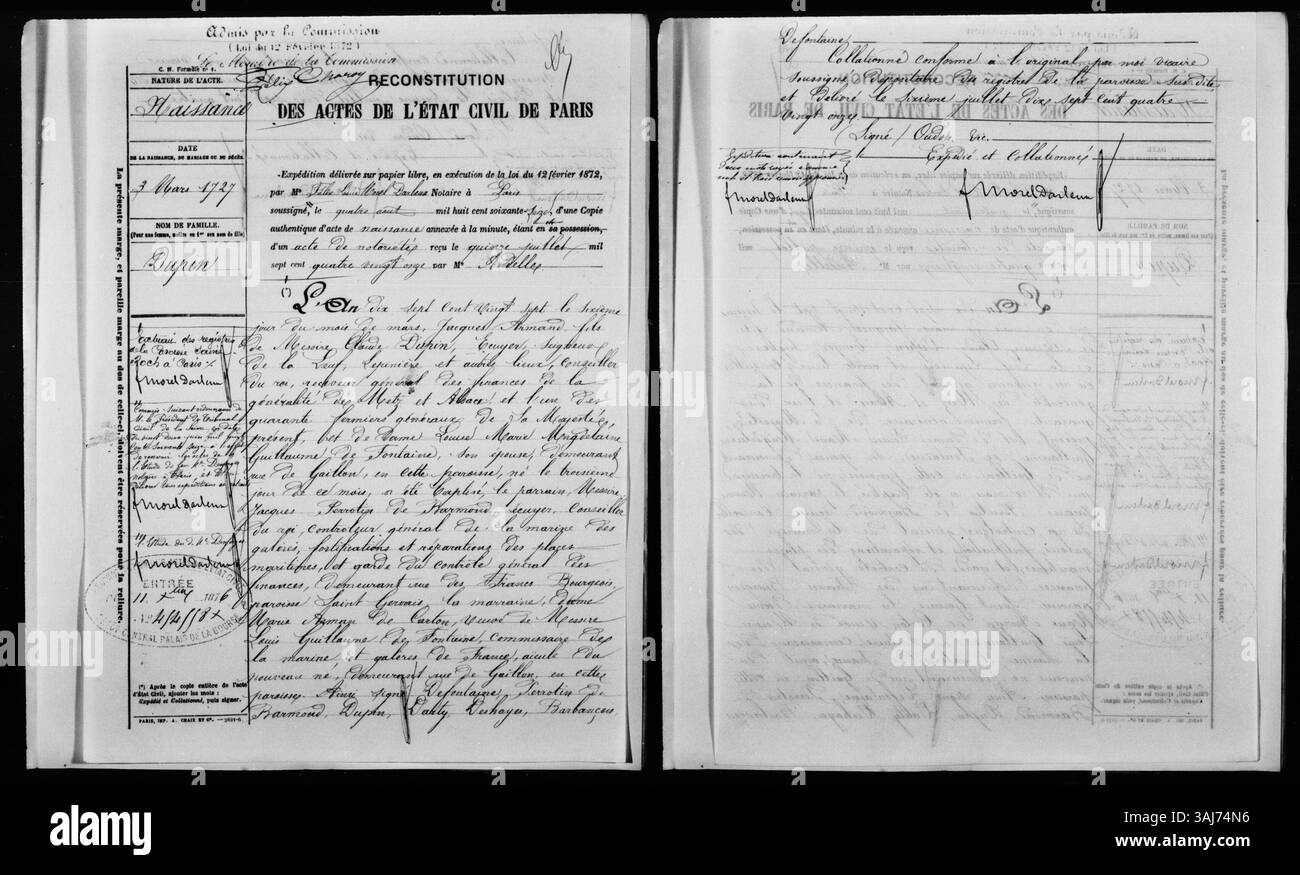 Admis par la Commission
(Loi du 12 Février 1872)
Le Membre de la Commission
C. N. Formule n° 4.
NATURE DE L'ACTE.
Naissance
DATE
DE LA NAISSANCE, DU MARIAGE OU DU DÉCÈS.
3 Mars 1727
NOM DE FAMILLE.
(Pour une femme, mettre son nom de fille)
Dupin
Extrait des registres
de la Paroisse Saint
Roch à Paris
Morel Darleux
Morel Darleux
Morel Darleux
ENTRÉE
11 Xbre 1876
CENTRAL PALAIS DE LA BOURSE
(*) Après la copie entière de l'acte
d'État Civil, ajouter les mots :
Expédié et Collationné, puis signer.
PARIS, IMP. A. CHAIX ET Cie.
La présente marge, et pareille marge au dos de celle-ci, doivent être réservées pour la reliure.
RECONSTITUTION
DES ACTES DE L'ÉTAT CIVIL DE PARIS
Expédition délivrée sur papier libre, en exécution de la loi du 12 février 1872,
par Me Morel Darleux Notaire à Paris
soussigné, le quatre août mil huit cent soixante-seize, d'une Copie
authentique d'acte de naissance annexée à la minute, étant en sa possession,
d'un acte de notoriété reçu le quinze juillet mil
sept cent quatre vingt onze par Me
(*)
L'An dix sept cent vingt sept le sixième
jour du mois de mars, Jacques Armand fils
de Messire Claude Dupin, Ecuyer, Seigneur
de la Leuf, Lepinière et autres lieux, conseiller
du roi, receveur général des finances de la
généralité de Metz et Alsace et l'un des
quarante fermiers généraux de Sa Majesté,
présent, et de Dame Louise Marie Magdelaine
Guillaume de Fontaine, son épouse, demeurant
rue de Gaillon, en cette paroisse, né le troisième
jour de ce mois, a été baptisé, le parrain, Messire
Jacques Perrotin de Barmond, écuyer, Conseiller
du roi, controleur général de la marine des
galères, fortifications et réparations des places
maritimes, et garde du contrôle général des
finances, demeurant rue des Francs Bourgeois,
paroisse Saint Gervais, la marraine, Edmée
Marie Armande de Carton, veuve de Messire
Louis Guillaume de Fontaine, commissaire de
la marine, et galères de France, aieule du
nouveau né, demeurant rue de Gaillon, en cette
paroisse. Ainsi signé Defontaine, Perrotin de
Barmond, Dupin, Dauty, Deshayes, Barbançois
Defontaine
Collationné conforme à l'original par moi vicaire
soussigné, dépositaire des registres de la paroisse sus dite
et délivré le sixième juillet dix sept cent quatre
vingt onze.
Signé / Oudot, vic.
Expédié et Collationné
Morel Darleux
Morel Darleux
alamy
Image ID: 3AJ74N6
www.alamy.com